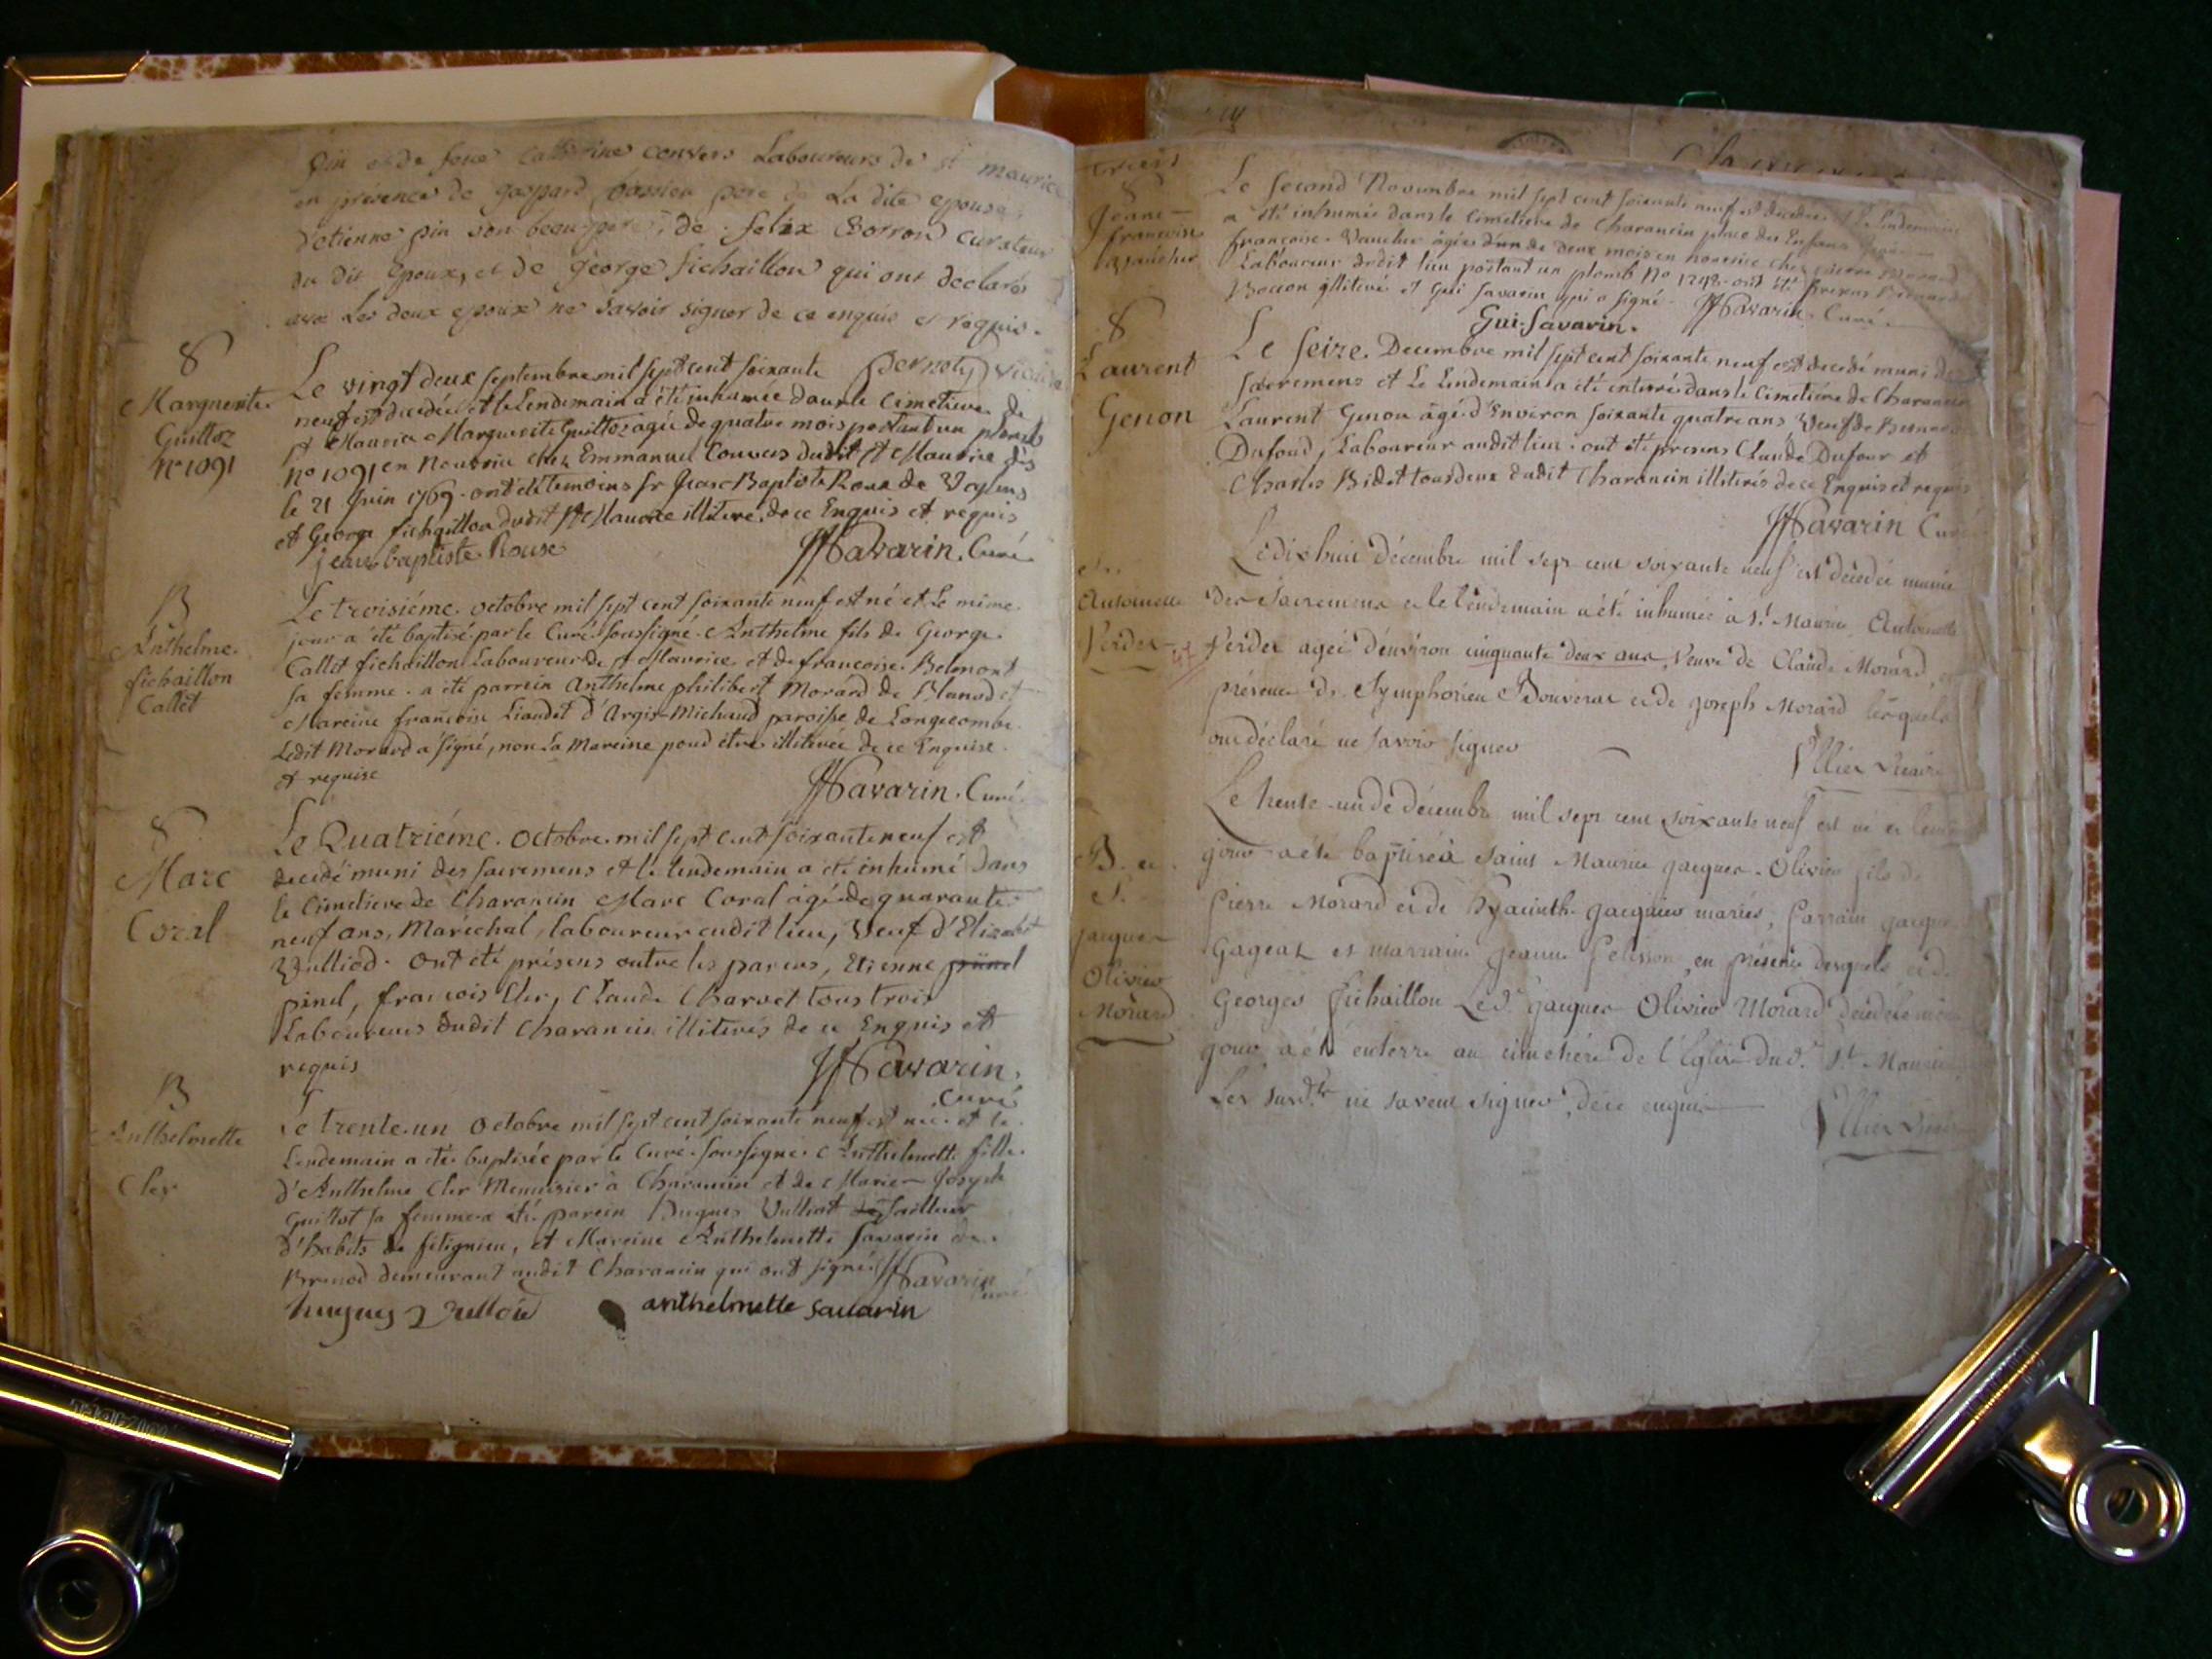 pin et de feue Catherine convers Laboureurs de St maurice
en presence de gaspard bossieu pere de La dite epouse,
d'etienne pin son beau-pere, de felix Borron curateur
du dit epoux, et de george fichaillon qui ont declarés
avec Les deux epoux ne savoir signer de ce enquis et requis.
pernoty vicaire
8
Marguerite
Guittoz
N° 1091
Le vingt deux septembre mil sept cent soixante
neuf est decedée et le Lendemain a été inhumée dans le Cimetiere de
St Maurice Marguerite Guittoz agée de quatre mois portant un plomb
N° 1091 en Nourrice chez Emmanuel Convers dudit St Maurice dès
le 21 Juin 1769. ont été temoins Sr Jean Baptiste Roux de
et George fichaillon dudit St Maurice illiteré de ce Enquis et requis
jean baptiste Rouse JfSavarin. Curé
B
Anthelme
fichaillon
Callet
Le troisiéme. octobre mil sept cent soixante neuf est né et Le même
jour a été baptisé par le Curé soussigné Anthelme fils de George
Callet fichaillon Laboureur de St Maurice et de francoise Belmont
sa femme. a été parrein Anthelme philibert Morard de Blanod et
Mareine francoise Liaudet d'Argis-Michaud paroisse de Longecombe
Ledit Morard a signé, non La Mareine pour être illiterée de ce Enquise
et requise
JfSavarin. Curé
8
Marc
Coral
Le Quatriéme. Octobre mil sept cent soixante neuf est
decedé muni des sacremens et le lendemain a été inhumé Dans
le Cimetiere de Charancin Marc Coral âgé de quarante
neuf ans, Maréchal, laboureur audit lieu, Veuf d'Elizabet
Vulliod. Ont été présens outre les parens, Etienne
pinel, francois Cler, Claude Charvet tous trois
Laboureurs dudit Charancin illiterés de ce Enquis et
requis
JfSavarin,
Curé
B
Anthelmette
Cler
Le trente-un Octobre mil sept cent soixante neuf est née et le
Lendemain a été baptisée par le Curé soussigné Anthelmette fille
d'Anthelme Cler Menuisier à Charancin et de Marie-Joseph
Guittot sa femme a été parein Hugues Vulliot Tailleur
d'habits de fitignieu, et Mareine Anthelmette Savarin de
Brenod demeurant audit Charancin qui ont signé JfSavarin
curé
hugues Vulliod anthelmette sauarin
8
Jeane
francoise
Vaucher
Le second Novembre mil sept cent soixante neuf est decedée et Le Lendemain
a été inhumée dans le Cimetiere de Charancin place des Enfans Jeane
françoise Vaucher agée d'un de deux mois en nourrice chez pierre
Laboureur dudit lieu portant un plomb N° 1248. ont été presens
Borron illiteré et Gui Savarin qui a signé. JfSavarin. Curé.
Gui. Savarin.
8
Laurent
Genon
Le Seize. Decembre mil sept cent soixante neuf est decedé muni des
Sacremens et Le Lendemain a été enterré dans le Cimetiere de Charancin
Laurent Genon âgé d'Environ soixante quatre ans Veuf de
Dufour, Laboureur audit lieu. ont été presens Claude Dufour et
Charles Bidet tous deux dudit Charancin illiterés de ce Enquis et requis
JfSavarin Curé
S.
Antoinette
Perdex
Le dix huit décembre mil sept cent soixante neuf est décédée munie
des sacremens et le lendemain a été inhumée a St Maurice Antoinette
Perdex agée d'environ cinquante deux ans, Veuve de Claude Morard, en
présence de Symphorien Bouverat et de joseph Morard lesquels
ont déclaré ne savoir signer
Ullier Vicaire
B. et
S.
jacques
Olivier
Morard
Le trente-un de décembre mil sept cent soixante neuf est né et le meme
jour a été baptisé à Saint Maurice jacques-Olivier fils de
Pierre Morard et de Hyacinthe jacquier mariés, Parrain jacques
Gageat et marraine jeanne Pelisson, en présence desquels et de
Georges Fichaillon Led. jacques Olivier Morard décédé le même
jour a été enterré au cimetiére de l'Eglise dud. St Maurice
Les susd.ts ne savent signer, de ce enquis
Ullier Vicaire